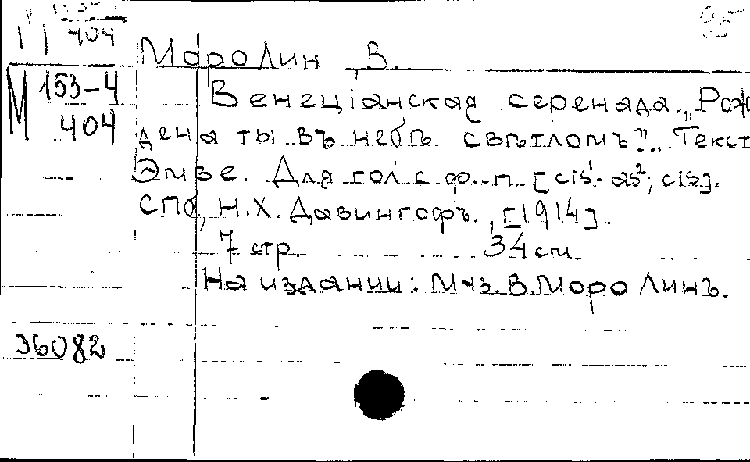 404
95
Моролин В.
М 153-4
404
Венецiанская серенада. „Рож
дена ты въ небѣ свѣтломъ". Текст
Эмве. Для гол с ф.-п. [cis¹-as²; cis].
СПб, Н.Х. Давингофъ., [1914].
7 стр. 34 см
На издании: Муз. В. Моро Линъ.
36082